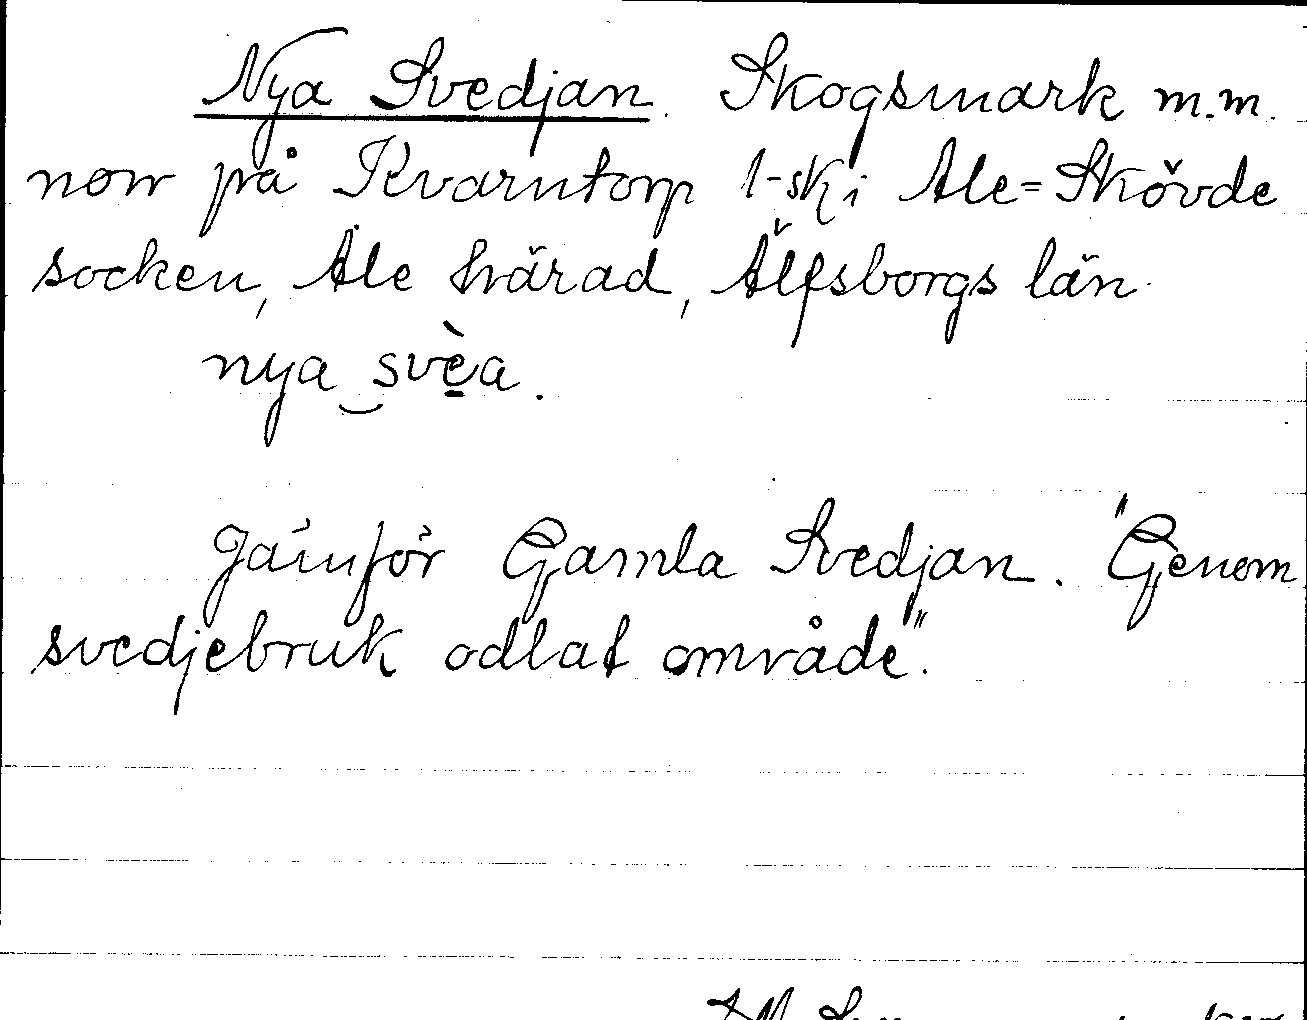 Nya Svedjan. Skogsmark m.m.
norr på Kvarntorp 1-sk i Ale=Skövde
socken, Ale härad, Älfsborgs län.
nya‿svèa.
Jämför Gamla Svedjan. "Genom
svedjebruk odlat område".